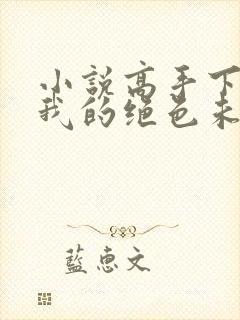 小說高手下
我的绝色未
藍惠文